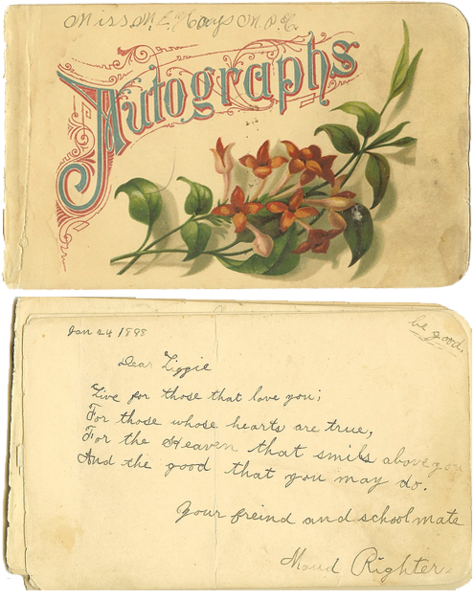 Miss M. E. Hays M. P. H.
Autographs
Jan 24 1898
be good
Dear Lizzie
Live for those that love you;
For those whose hearts are true,
For the Heaven that smils above you
And the good that you may do.
Your freind and schoolmate
Maud Righter